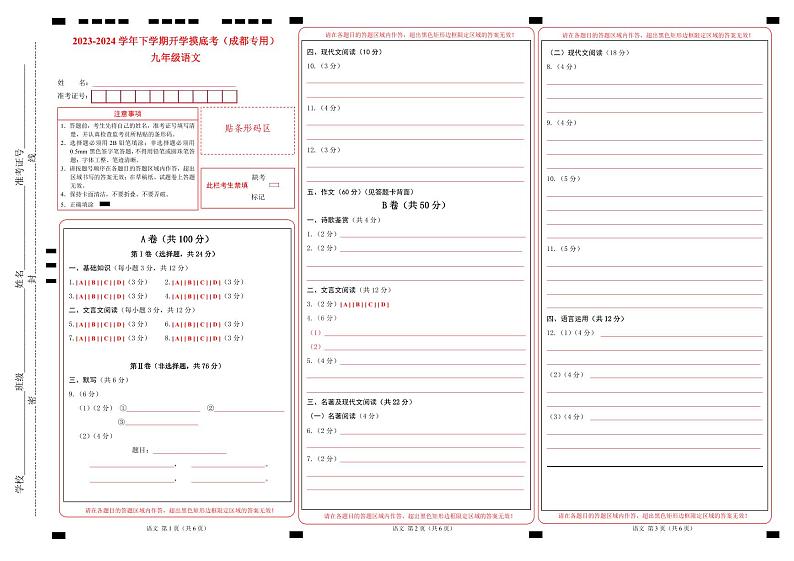 学校
班级
姓名
准考证号
密
封
线
2023-2024 学年下学期开学摸底考（成都专用）
九年级语文
姓 名：
准考证号：
注意事项
1．答题前，考生先将自己的姓名，准考证号填写清
楚，并认真检查监考员所粘贴的条形码。
2．选择题必须用 2B 铅笔填涂；非选择题必须用
0.5mm 黑色签字笔答题，不得用铅笔或圆珠笔答
题；字体工整、笔迹清晰。
3．请按题号顺序在各题目的答题区域内作答，超出
区域书写的答案无效；在草稿纸、试题卷上答题
无效。
4．保持卡面清洁，不要折叠、不要弄破。
5．正确填涂
贴条形码区
此栏考生禁填
缺考
标记
A 卷（共 100 分）
第Ⅰ卷（选择题，共 24 分）
一、基础知识（每小题 3 分，共 12 分）
1.[A][B][C][D]（3 分） 2.[A][B][C][D]（3 分）
3.[A][B][C][D]（3 分） 4.[A][B][C][D]（3 分）
二、文言文阅读（每小题 3 分，共 12 分）
5.[A][B][C][D]（3 分） 6.[A][B][C][D]（3 分）
7.[A][B][C][D]（3 分） 8.[A][B][C][D]（3 分）
第Ⅱ卷（非选择题，共 76 分）
三、默写（共 6 分）
9.（6 分）
（1）（2 分） ① ②
③
（2）（4 分）
题目：
， ，
， 。
请在各题目的答题区域内作答，超出黑色矩形边框限定区域的答案无效！
语文 第 1 页（共 6 页）
请在各题目的答题区域内作答，超出黑色矩形边框限定区域的答案无效！
四、现代文阅读（10 分）
10.（3 分）
11.（4 分）
12.（3 分）
五、作文（60 分）（见答题卡背面）
B 卷（共 50 分）
一、诗歌鉴赏（共 4 分）
1.（2 分）
2.（2 分）
二、文言文阅读（共 12 分）
3.（2 分）[A][B][C][D]
4.（6 分）
（1）
（2）
5.（4 分）
三、名著及现代文阅读（共 22 分）
（一）名著阅读（4 分）
6.（2 分）
7.（2 分）
请在各题目的答题区域内作答，超出黑色矩形边框限定区域的答案无效！
语文 第 2 页（共 6 页）
请在各题目的答题区域内作答，超出黑色矩形边框限定区域的答案无效！
（二）现代文阅读（18 分）
8.（4 分）
9.（4 分）
10.（5 分）
11.（5 分）
四、语言运用（共 12 分）
12.（1）（4 分）
（2）（4 分）
（3）（4 分）
请在各题目的答题区域内作答，超出黑色矩形边框限定区域的答案无效！
语文 第 3 页（共 6 页）